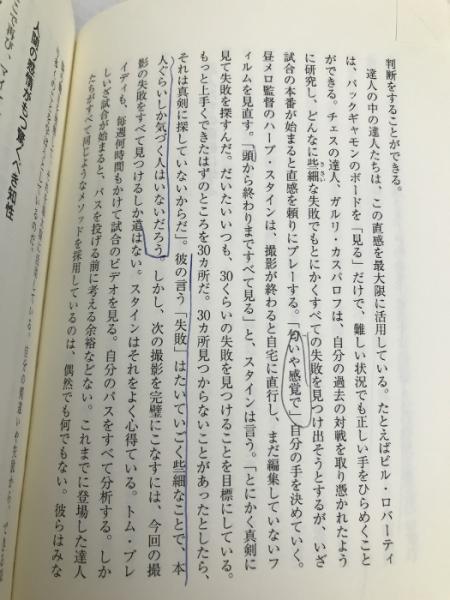 判断をすることができる。
達人の中の達人たちは、この直感を最大限に活用している。たとえばビル・ロバーティ
は、バックギャモンのボードを「見る」だけで、難しい状況でも正しい手をひらめくこと
ができる。チェスの達人、ガルリ・カスパロフは、自分の過去の対戦を取り憑かれたよう
に研究し、どんなに些細な失敗でもとにかくすべての失敗を見つけ出そうとするが、いざ
試合の本番が始まると直感を頼りにプレーする。「匂いや感覚で」自分の手を決めていく。
昼メロ監督のハーブ・スタインは、撮影が終わると自宅に直行し、まだ編集していないフ
ィルムを見直す。「頭から終わりまですべて見る」と、スタインは言う。「とにかく真剣に
見て失敗を探すんだ。だいたいいつも、30くらいの失敗を見つけることを目標にしている。
もっと上手くできたはずのところを30カ所だ。30カ所見つからないことがあったとしたら、
それは真剣に探していないからだ」。彼の言う「失敗」はたいていごく些細なことで、本
人ぐらいしか気づく人はいないだろう。しかし、次の撮影を完璧にこなすには、今回の撮
影の失敗をすべて見つけるしか道はない。スタインはそれをよく心得ている。トム・ブレ
イディも、毎週何時間もかけて試合のビデオを見る。自分のパスをすべて分析する。しか
しいざ試合が始まると、パスを投げる前に考える余裕などない。これまでに登場した達人
たちがすべて同じようなメソッドを採用しているのは、偶然でも何でもない。彼らはみな